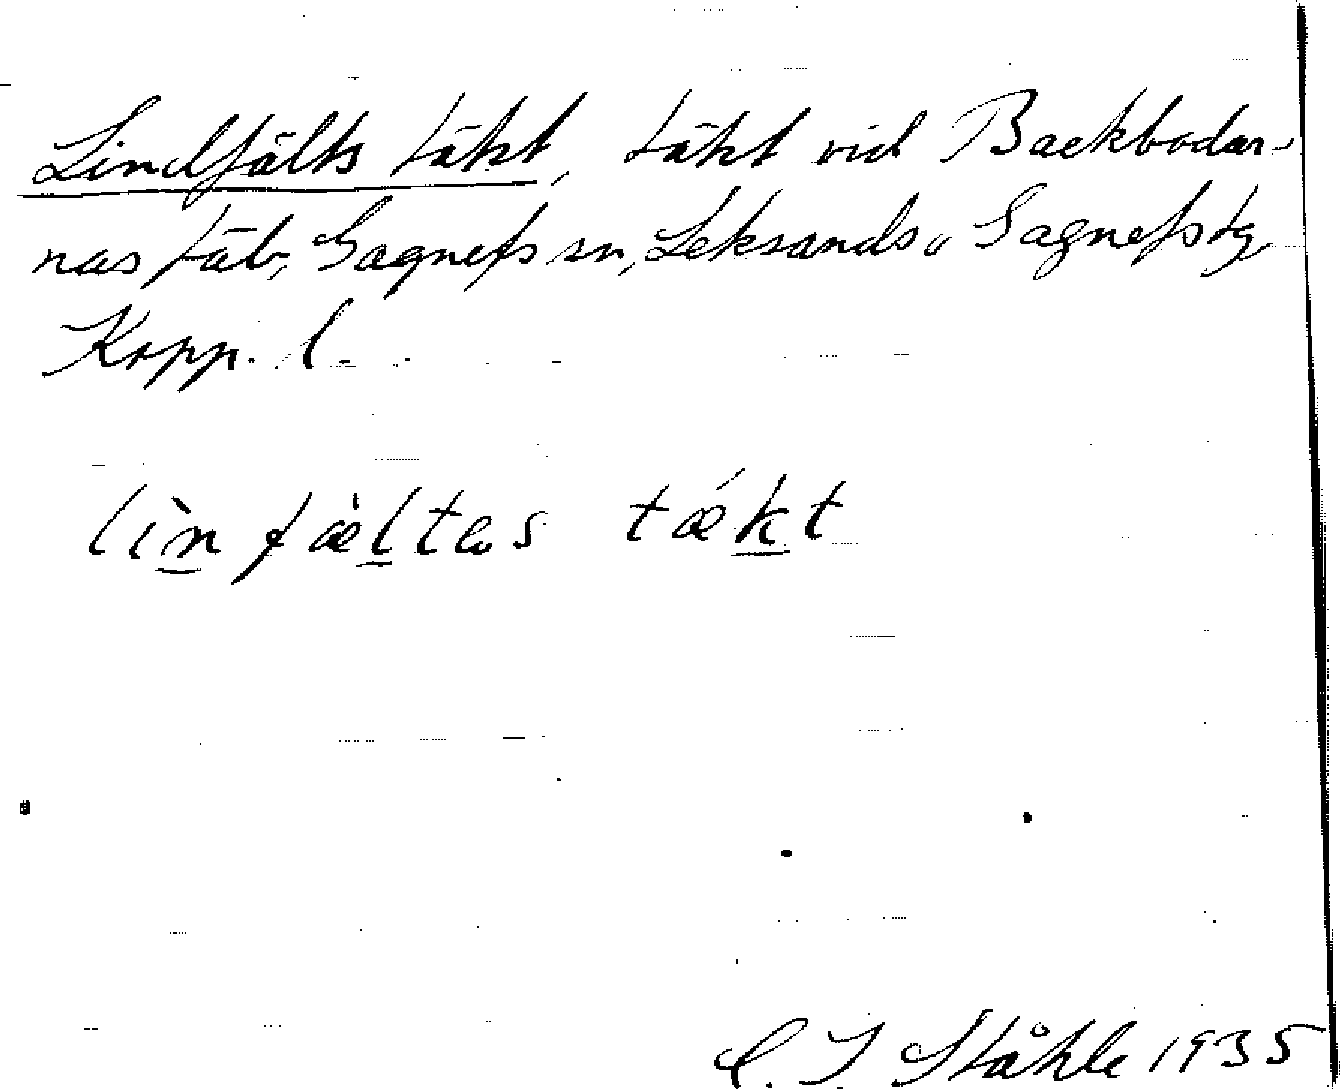 Lindfälts täkt, täkt vid Backbodar-
nas fäb, Gagnefs sn, Leksands o Gagnefs tg,
Kopp. l.
lìn fæ̀ltas tǽkt
C. I. Ståhle 1935